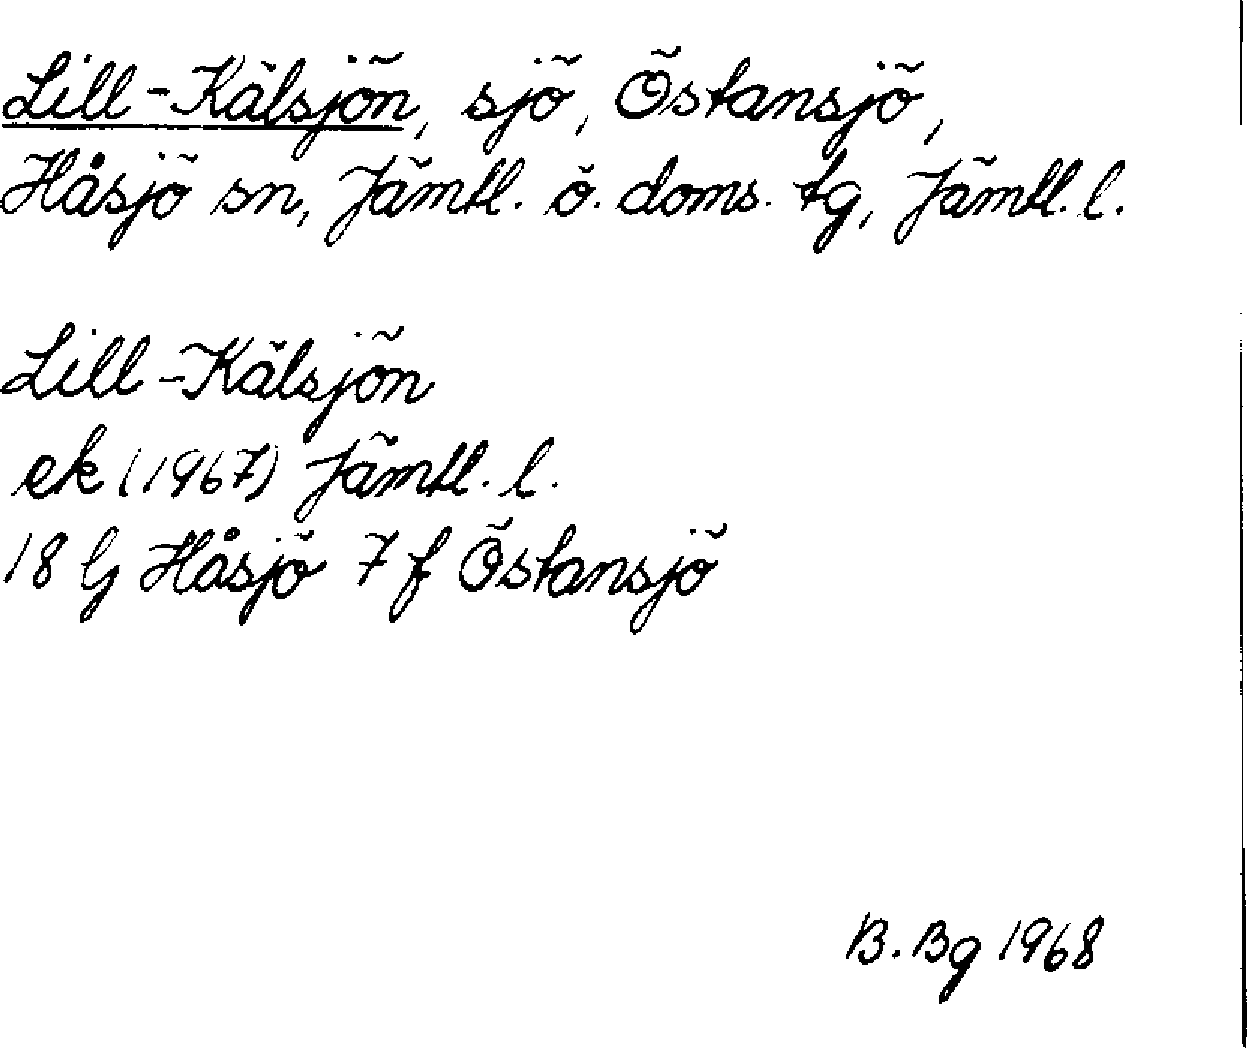 Lill-Kälsjön, sjö, Östansjö,
Håsjö sn, Jämtl. ö. doms. tg, Jämtl. l.
Lill-Kälsjön
ek (1967) Jämtl. l.
18 G Håsjö 7 f Östansjö
B. Bg 1968